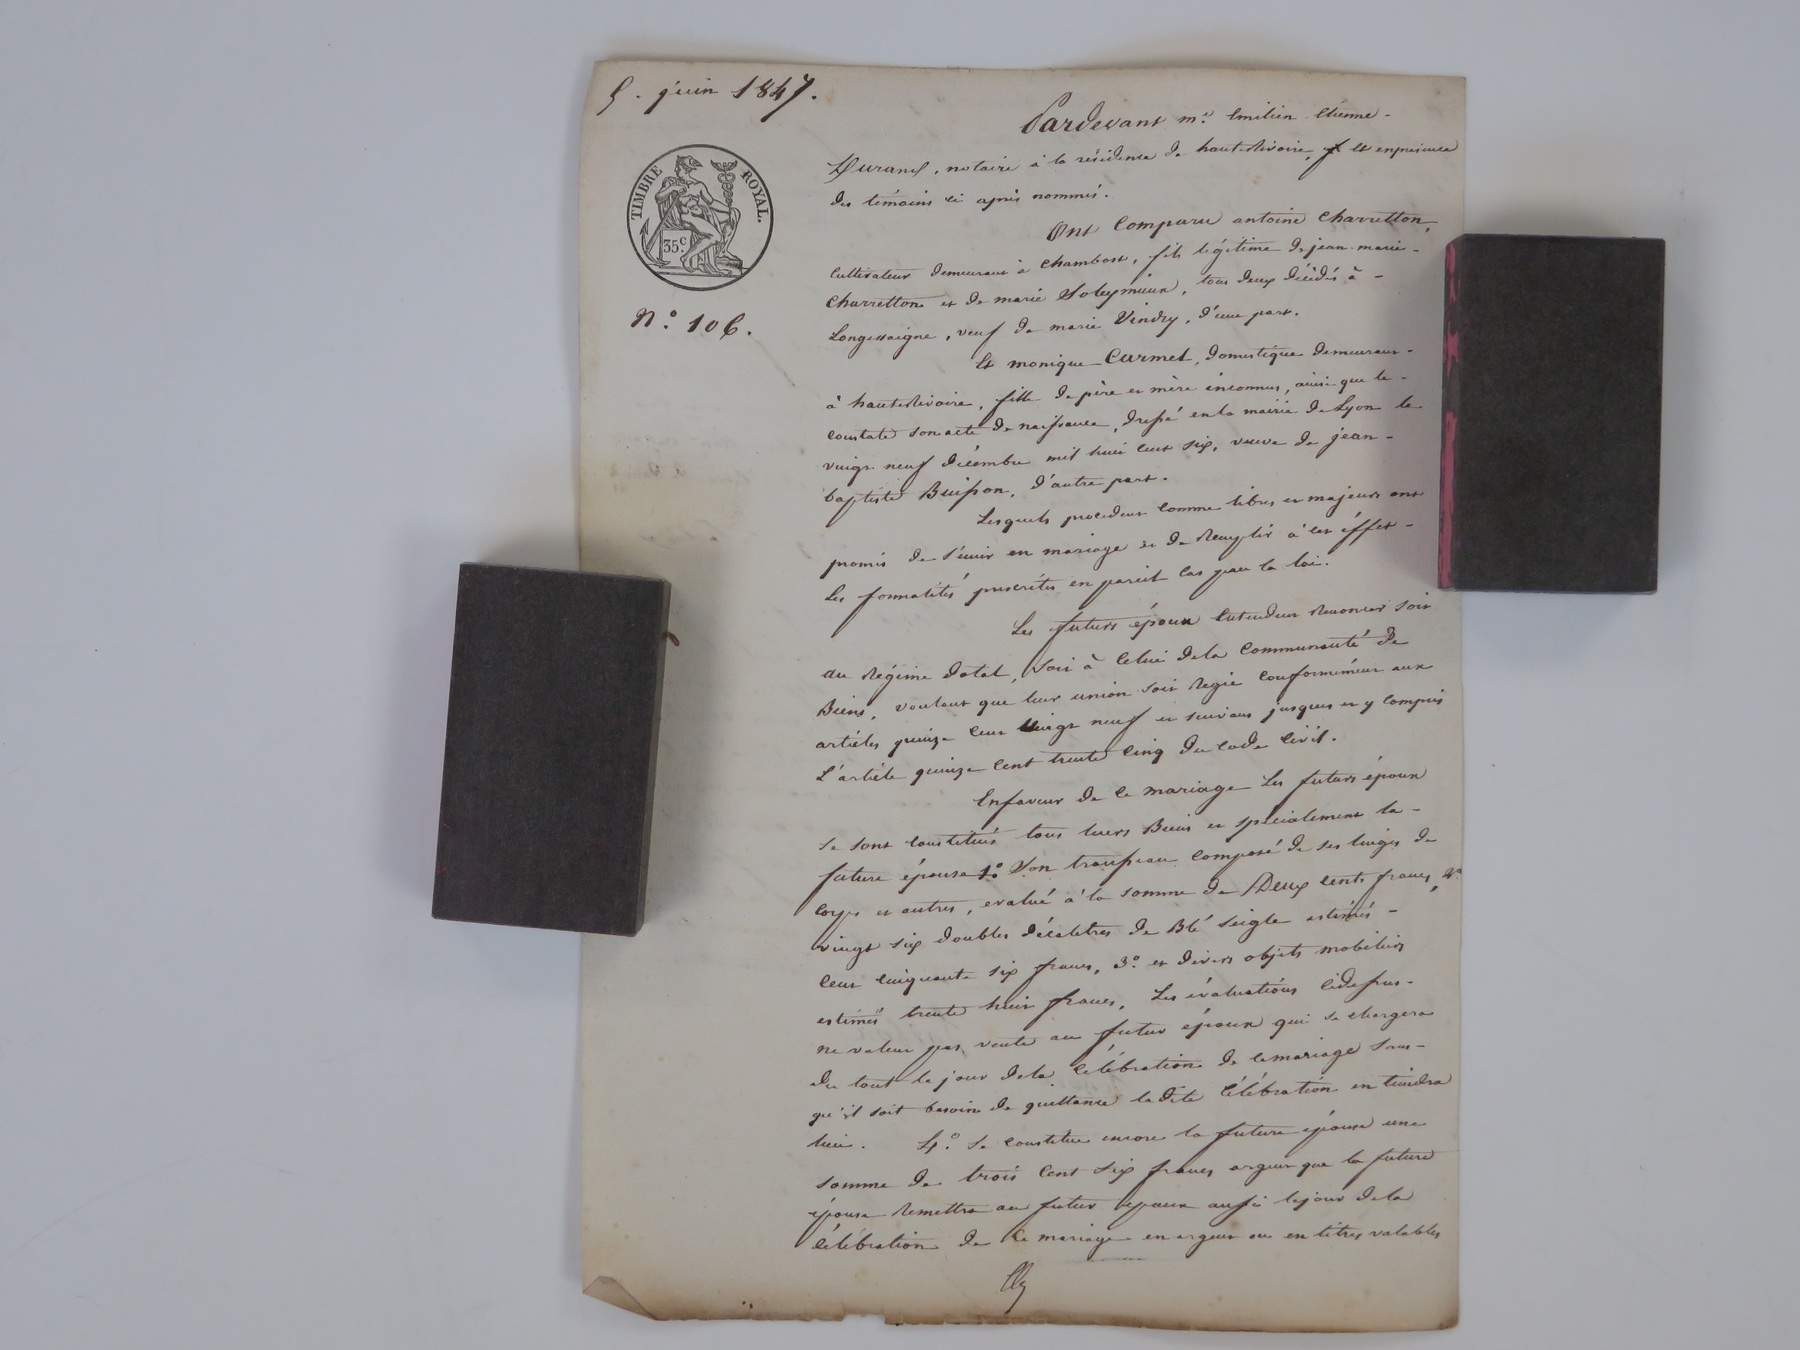 5. juin 1847.
TIMBRE ROYAL.
35 c.
N.o 106.
Pardevant m.e Emilien Etienne -
Durand, notaire à la résidence de hauterivoire, et enprésence
des témoins ci après nommés.
Ont Comparu antoine Charretton,
Cultivateur demeurant à Chambost, fils légitime de jean marie -
Charretton et de marie Soleymieux, tous deux décédés à -
Longessaigne, veuf de marie Vindry, d'une part.
Et monique Carmel, domestique demeurant -
à hauterivoire, fille de père et mère inconnus, ainsi que le -
constate son acte de naissance, dressé en la mairie de Lyon le
vingt neuf décembre mil huit cent six, veuve de jean -
baptiste Buisson, d'autre part.
Lesquels procedant comme libres et majeurs ont
promis de s'unir en mariage et de Remplir à cet éffet -
Les formalités prescrites en pareil cas par la loi.
Les futurs époux Entendent Renoncer soit
au Régime dotal, soit à Celui dela Communauté de
Biens, voulant que leur union soit Regie conformément aux
articles quinze cent vingt neuf et suivans jusques et y compris
L'article quinze cent trente cinq du code civil.
Enfaveur de ce mariage Les futurs époux
se sont constitués tous leurs Biens et spécialement la -
future épouse 1.o Son trousseau composé de ses linges de
corps et autres, evalué à la somme de Deux cents francs, 2.o
vingt six doubles décalitres de Blé seigle estimés -
cent cinquante six francs, 3.o et divers objets mobiliers
estimés trente huit francs. Les évaluations cidessus -
ne valent pas vente au futur époux qui se chargera
du tout le jour dela célébration de cemariage sans -
qu'il soit besoin de quittance ladite Célébration en tiendra
lieu. 4.o se constitue encore la future épouse une
somme de trois cent six francs argent que la future
épouse Remettra au futur époux aussi lejour dela
célébration de ce mariage en argent ou en titres valables